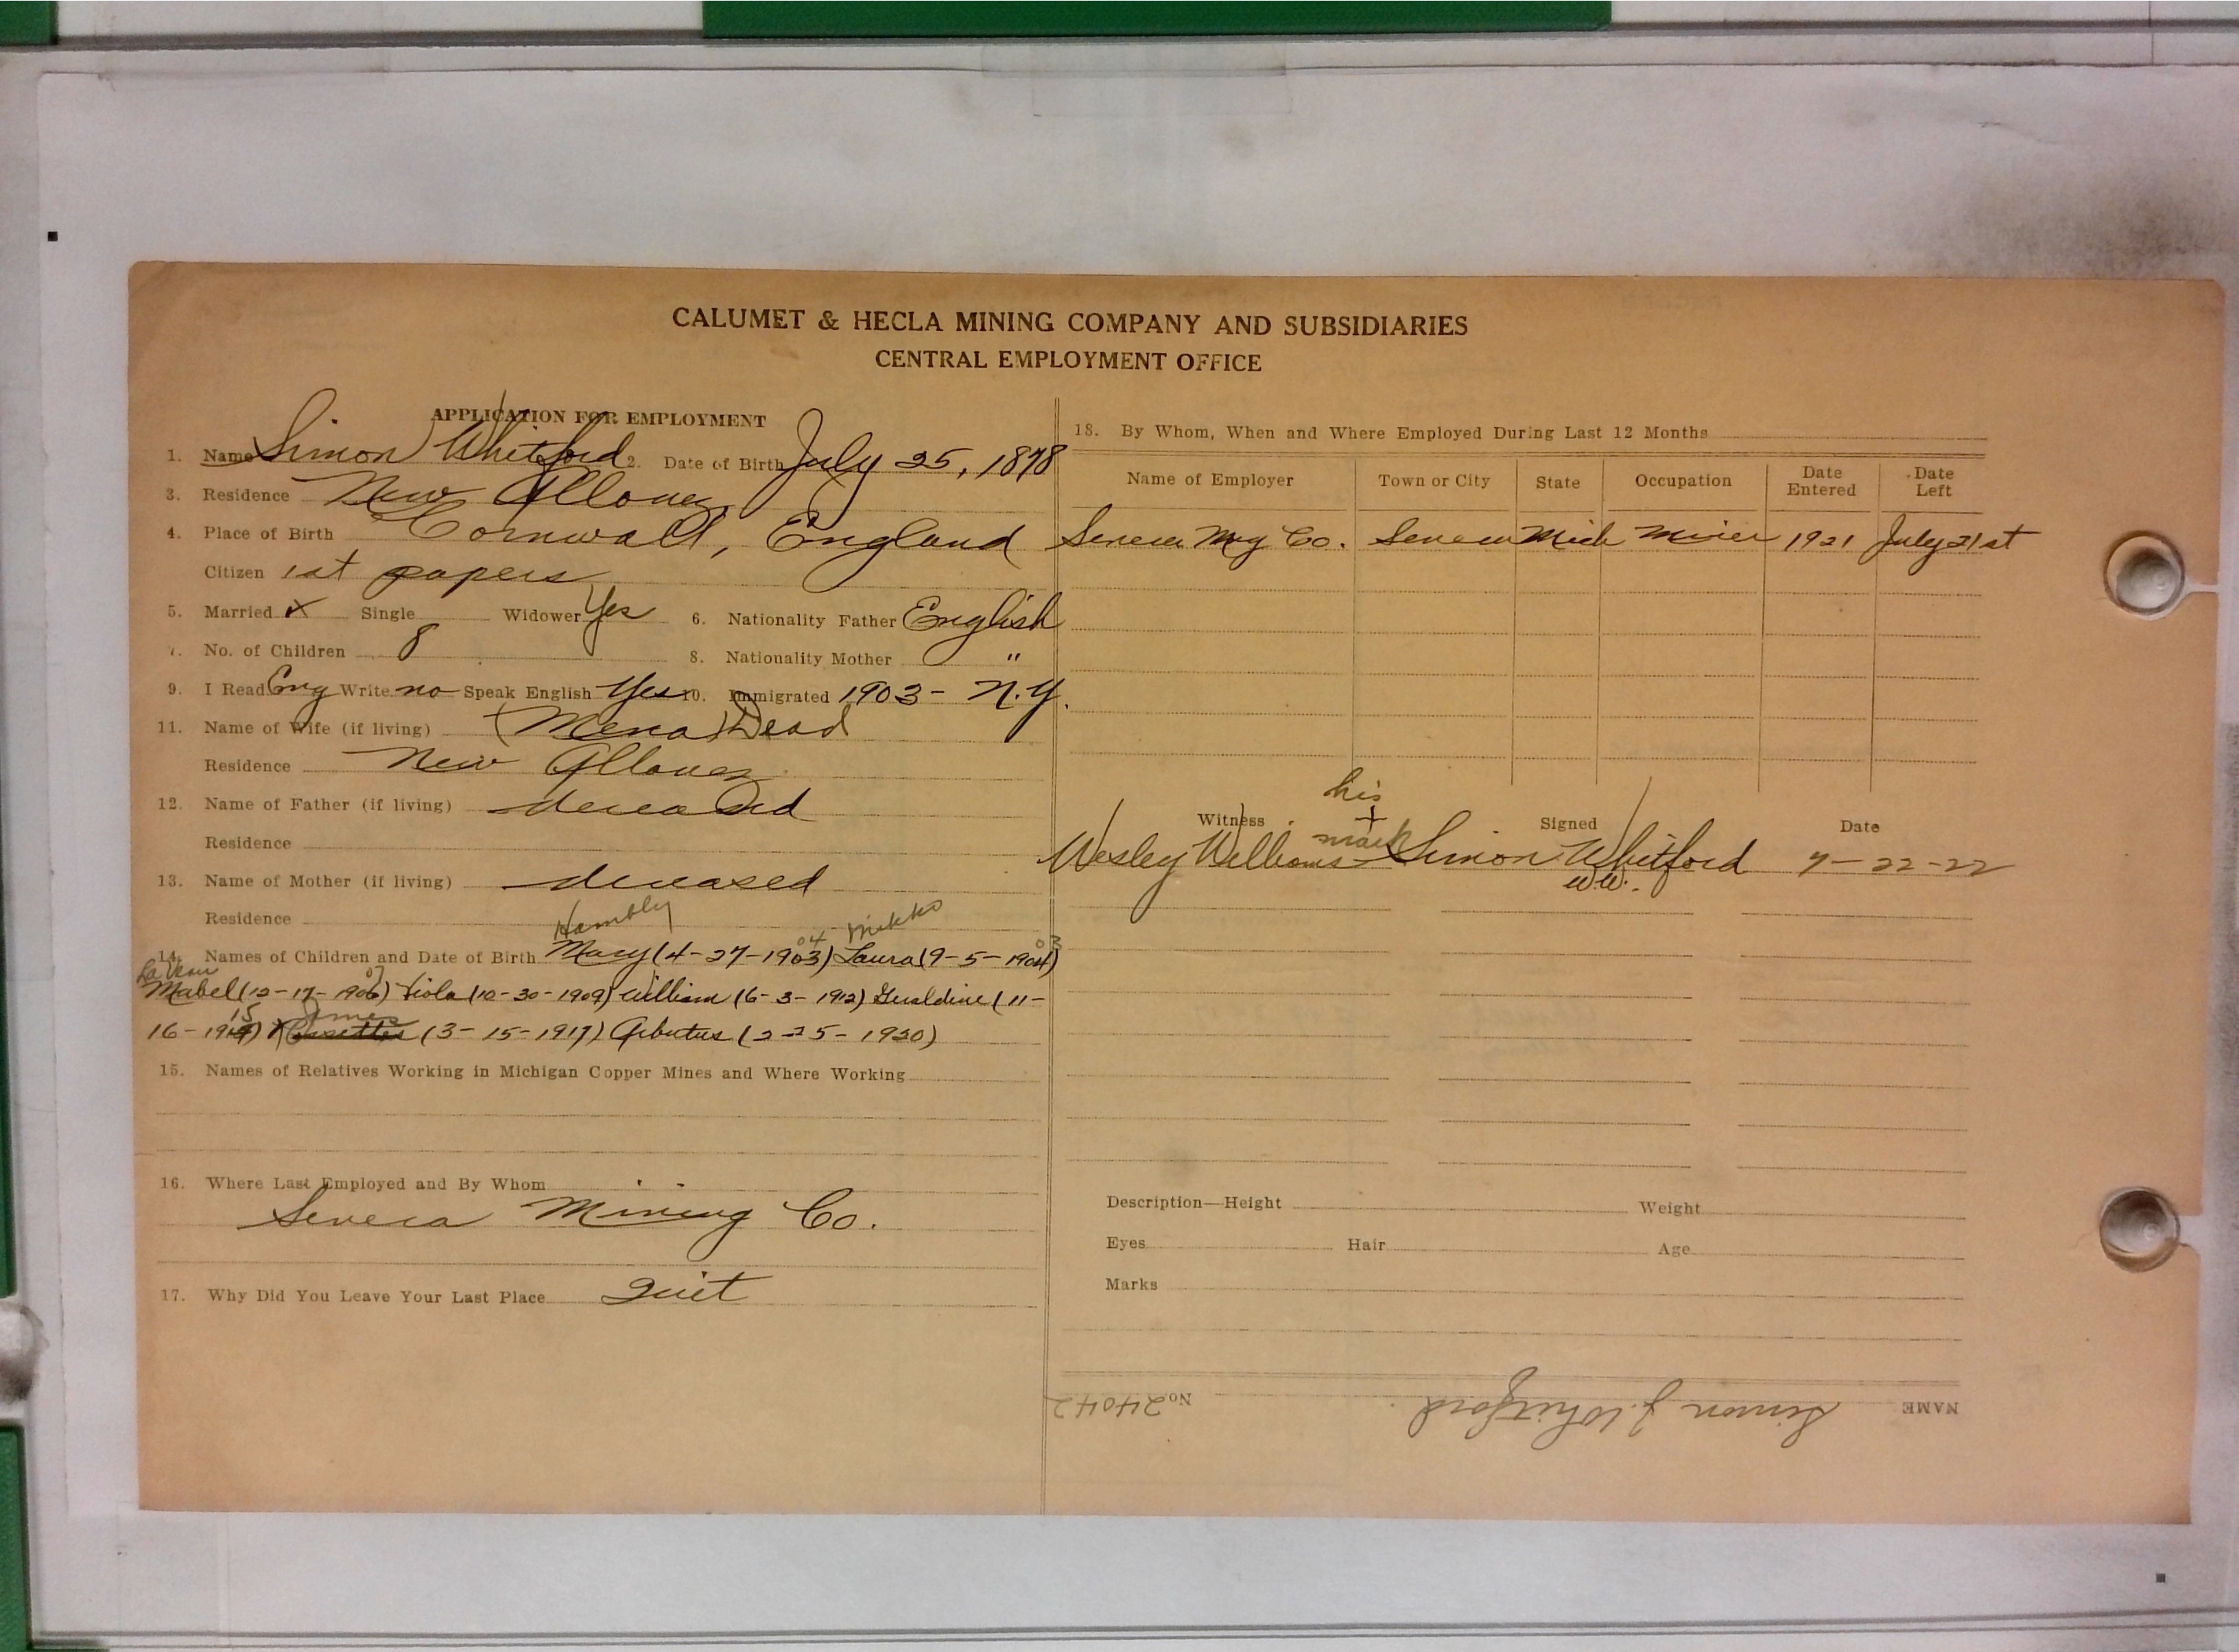 CALUMET & HECLA MINING COMPANY AND SUBSIDIARIES
CENTRAL EMPLOYMENT OFFICE
APPLICATION FOR EMPLOYMENT
1. Name Simon Whitford 2. Date of Birth July 25, 1878
3. Residence New Allouez
4. Place of Birth Cornwall, England
Citizen 1st papers
5. Married x Single Widower Yes 6. Nationality Father English
7. No. of Children 8 8. Nationality Mother "
9. I Read Eng Write no Speak English Yes 10. Immigrated 1903 - N.Y.
11. Name of Wife (if living) (Mena) Dead
Residence New Allouez
12. Name of Father (if living) deceased
Residence
13. Name of Mother (if living) deceased
Residence
Hambly 04 03
14. Names of Children and Date of Birth Mary (4-27-1903) Laura (9-5-1904)
07
Mabel (12-17-1906) Viola (10-30-1909) William (6-3-1912) Geraldine (11-
15 James
16-1914) (3-15-1917) Arbutus (2-25-1920)
15. Names of Relatives Working in Michigan Copper Mines and Where Working
16. Where Last Employed and By Whom
Seneca Mining Co.
17. Why Did You Leave Your Last Place Quit
18. By Whom, When and Where Employed During Last 12 Months
Name of Employer Town or City State Occupation Date Entered Date Left
Seneca Mng Co. Seneca Mich Miner 1921 July 21st
his
Witness + Signed Date
mark
Wesley Williams Simon Whitford 7-22-22
WW.
Description—Height Weight
Eyes Hair Age
Marks
NAME Simon J. Whitford No. 24042